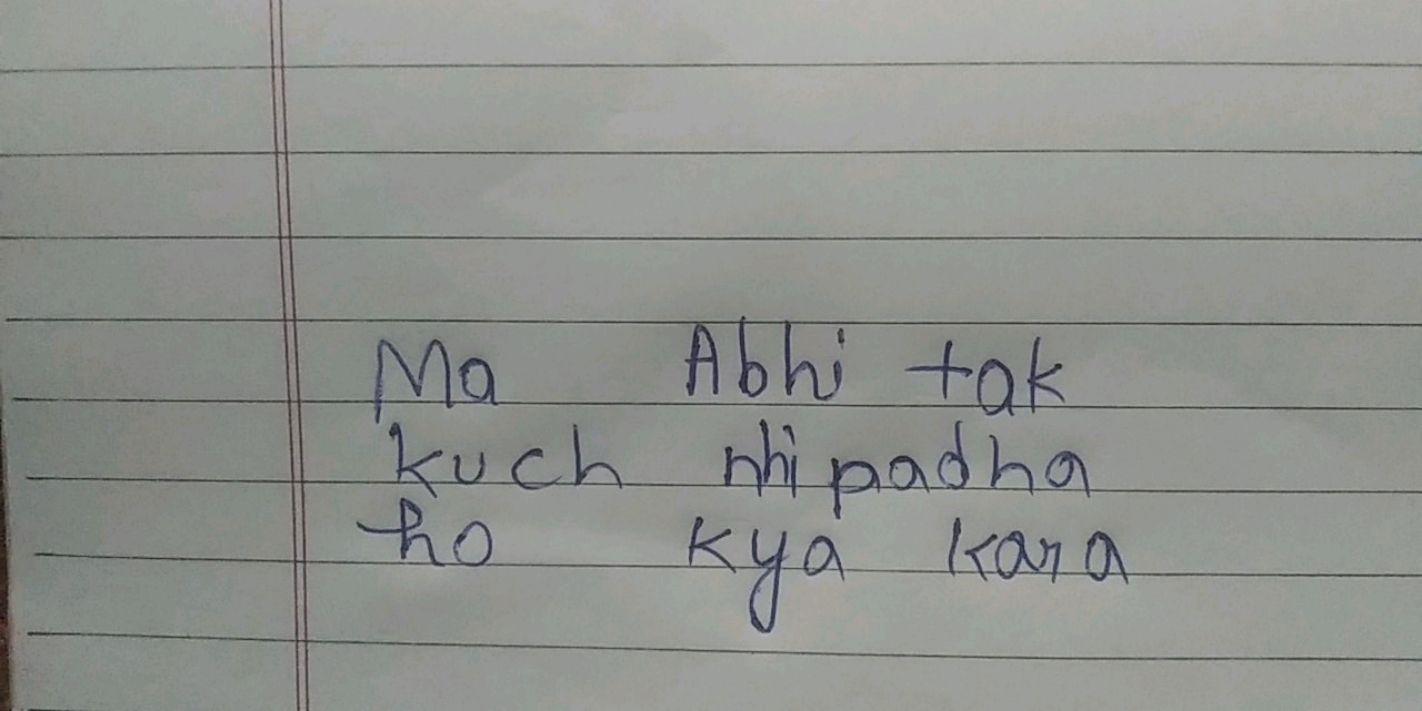 Ma Abhi tak
kuch nhi padha
ho kya kara